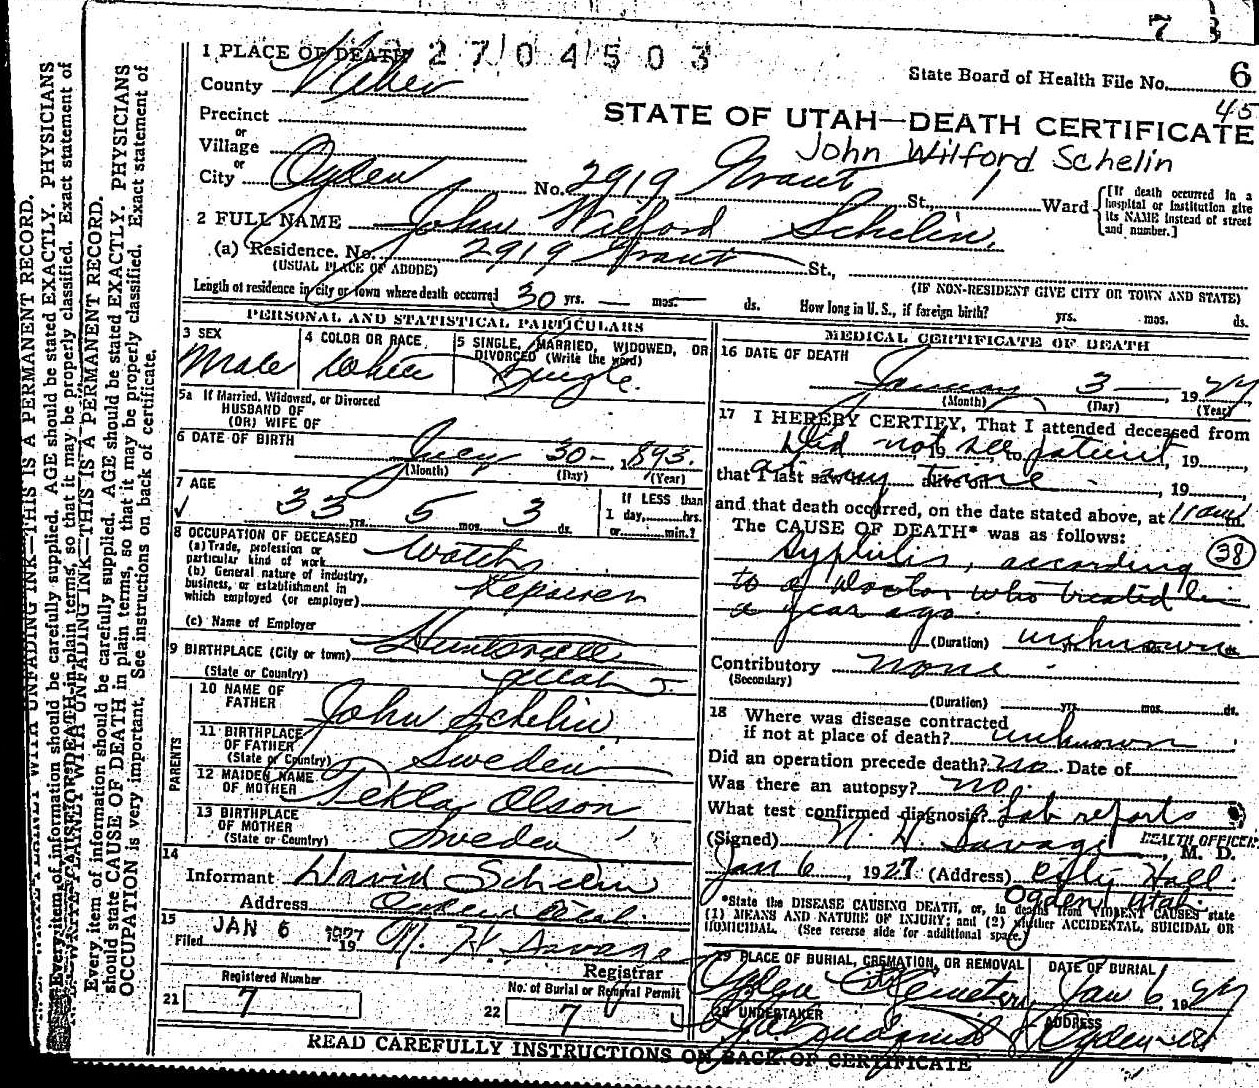 7 3
1 PLACE OF DEATH 2704503
State Board of Health File No. 6
45
County Weber
STATE OF UTAH—DEATH CERTIFICATE
Precinct
or
Village
John Wilford Schelin
or
City Ogden No. 2919 Grant St., 1 Ward
[If death occurred in a hospital or institution give its NAME instead of street and number.]
2 FULL NAME John Wilford Schelin.
(a) Residence. No. 2919 Grant St.,
(USUAL PLACE OF ABODE)
(IF NON-RESIDENT GIVE CITY OR TOWN AND STATE)
Length of residence in city or town where death occurred 30 yrs. — mos. ds. How long in U. S., if foreign birth? yrs. mos. ds.
PERSONAL AND STATISTICAL PARTICULARS
3 SEX
Male
4 COLOR OR RACE
White
5 SINGLE, MARRIED, WIDOWED, OR DIVORCED (Write the word)
Single.
5a If Married, Widowed, or Divorced
HUSBAND OF
(OR) WIFE OF
6 DATE OF BIRTH
July 30 – 1893.
(Month) (Day) (Year)
7 AGE
33 yrs. 5 mos. 3 ds.
If LESS than
1 day, hrs.
or min.?
8 OCCUPATION OF DECEASED
(a) Trade, profession or
particular kind of work Watch
(b) General nature of industry,
business, or establishment in
which employed (or employer) Repairer
(c) Name of Employer
9 BIRTHPLACE (City or town) Huntsville
(State or Country) Utah
PARENTS
10 NAME OF
FATHER John Schelin,
11 BIRTHPLACE
OF FATHER
(State or Country) Sweden
12 MAIDEN NAME
OF MOTHER Tekla Olson
13 BIRTHPLACE
OF MOTHER
(State or Country) Sweden
14
Informant David Schelin
Address Ogden Utah.
15
Filed JAN 6 1927 19
N. H. Savage
Registrar
Registered Number
21 7
No. of Burial or Removal Permit
22 7
MEDICAL CERTIFICATE OF DEATH
16 DATE OF DEATH
January 3 — 1927
(Month) (Day) (Year)
17 I HEREBY CERTIFY, That I attended deceased from
Did not see patient, 19 , to , 19 ,
that I last saw at any time alive on , 19
and that death occurred, on the date stated above, at 11 am m.
The CAUSE OF DEATH* was as follows:
Syphilis, according 38
to a Doctor who treated him
a year ago.
(Duration) unknown
Contributory none.
(Secondary)
(Duration) yrs. mos. ds.
18 Where was disease contracted
if not at place of death? unknown
Did an operation precede death? no Date of
Was there an autopsy? no.
What test confirmed diagnosis? Lab reports
(Signed) N. H. Savage HEALTH OFFICER M. D.
Jan 6, 1927 (Address) City Hall.
Ogden Utah.
*State the DISEASE CAUSING DEATH, or, in deaths from VIOLENT CAUSES state
(1) MEANS AND NATURE OF INJURY; and (2) whether ACCIDENTAL, SUICIDAL OR
HOMICIDAL. (See reverse side for additional space.)
19 PLACE OF BURIAL, CREMATION, OR REMOVAL
Ogden City Cemetery
DATE OF BURIAL
Jan 6 1927
20 UNDERTAKER
ADDRESS
Ogden Ut
READ CAREFULLY INSTRUCTIONS ON BACK OF CERTIFICATE
WRITE PLAINLY WITH UNFADING INK—THIS IS A PERMANENT RECORD.
Every item of information should be carefully supplied. AGE should be stated EXACTLY. PHYSICIANS
should state CAUSE OF DEATH in plain terms, so that it may be properly classified. Exact statement of
OCCUPATION is very important. See instructions on back of certificate.